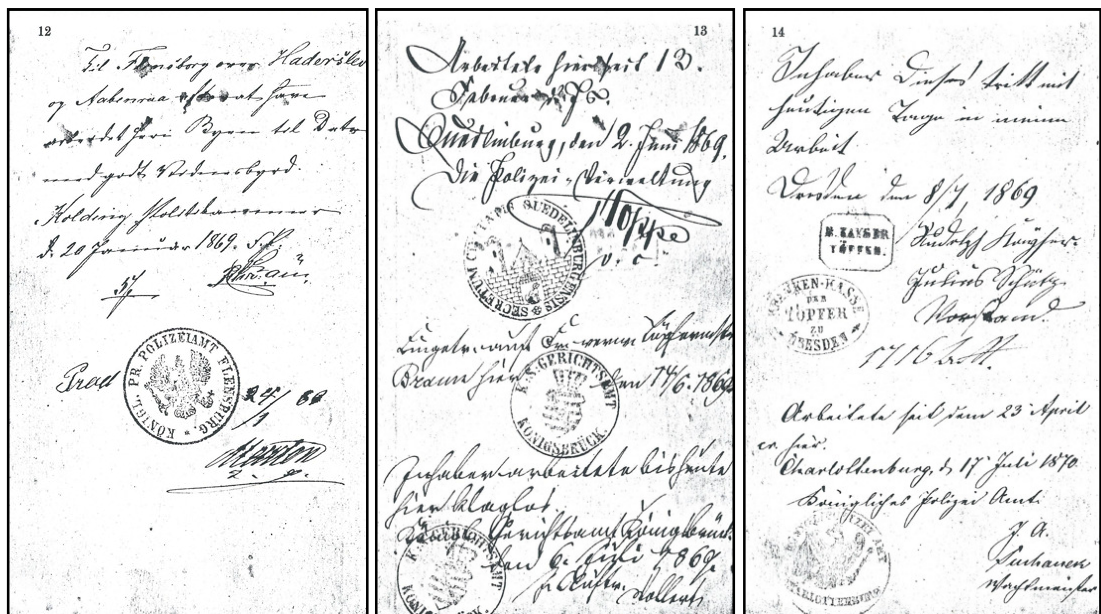 12
Til Flensborg over Haderslev
og Aabenraa efter at have
arbeidet her i Byen
med godt Vidnesbyrd.
Kolding Politikammer
d. 20 Januar 1869.
KÖNIGL. PR. POLIZEIAMT FLENSBURG.
24/1 69
13
Arbeitete hier seit 13.
Februar d. Js.
Quedlinburg, den 2. Juni 1869.
Die Polizei-Verwaltung
SECRETUM CIVITATIS QUEDELINBURGENSIS
hier den 14/6. 1869.
K. S. GERICHTSAMT KÖNIGSBRÜCK.
Inhaber arbeitete bis heute
hier klaglos.
Gerichtsamt Königsbrück
den 6. Juli 1869.
K. S. GERICHTSAMT KÖNIGSBRÜCK.
14
Inhaber dieses tritt mit
heutigen Tage in meine
Arbeit
Dresden den 8/7, 1869
R. KAYSER
TÖPFER.
Rudolph Kayser.
Julius Schütz
Vorstand.
KRANKEN-KASSE
DER
TÖPFER
ZU
DRESDEN
Arbeitete seit dem 23 April
cr. hier.
Charlottenburg, d. 17 Juli 1870
Königliches Polizei Amt
J. A.
Wachtmeister